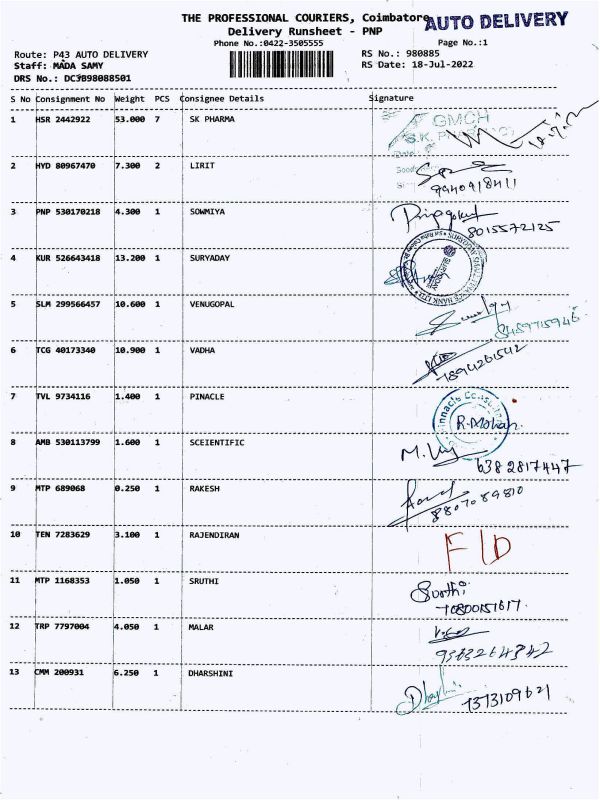 THE PROFESSIONAL COURIERS, Coimbatore
AUTO DELIVERY
Delivery Runsheet - PNP
Phone No.:0422-3505555
Page No.:1
Route: P43 AUTO DELIVERY
RS No.: 980885
Staff: MADA SAMY
RS Date: 18-Jul-2022
DRS No.: DCJB98088501
S No Consignment No Weight PCS Consignee Details Signature
1 HSR 2442922 53.000 7 SK PHARMA GMCH
2 HYD 80967470 7.300 2 LIRIT
9940918411
3 PNP 530170218 4.300 1 SOWMIYA
8015572125
4 KUR 526643418 13.200 1 SURYADAY
5 SLM 299566457 10.600 1 VENUGOPAL
8489715946
6 TCG 40173340 10.900 1 VADHA
7 TVL 9734116 1.400 1 PINACLE
R.Mohan
8 AMB 530113799 1.600 1 SCEIENTIFIC
6382817447
9 MTP 689068 0.250 1 RAKESH
8807089810
10 TEN 7283629 3.100 1 RAJENDIRAN
F/D
11 MTP 1168353 1.050 1 SRUTHI
12 TRP 7797004 4.050 1 MALAR
13 CMM 200931 6.250 1 DHARSHINI
7373109621